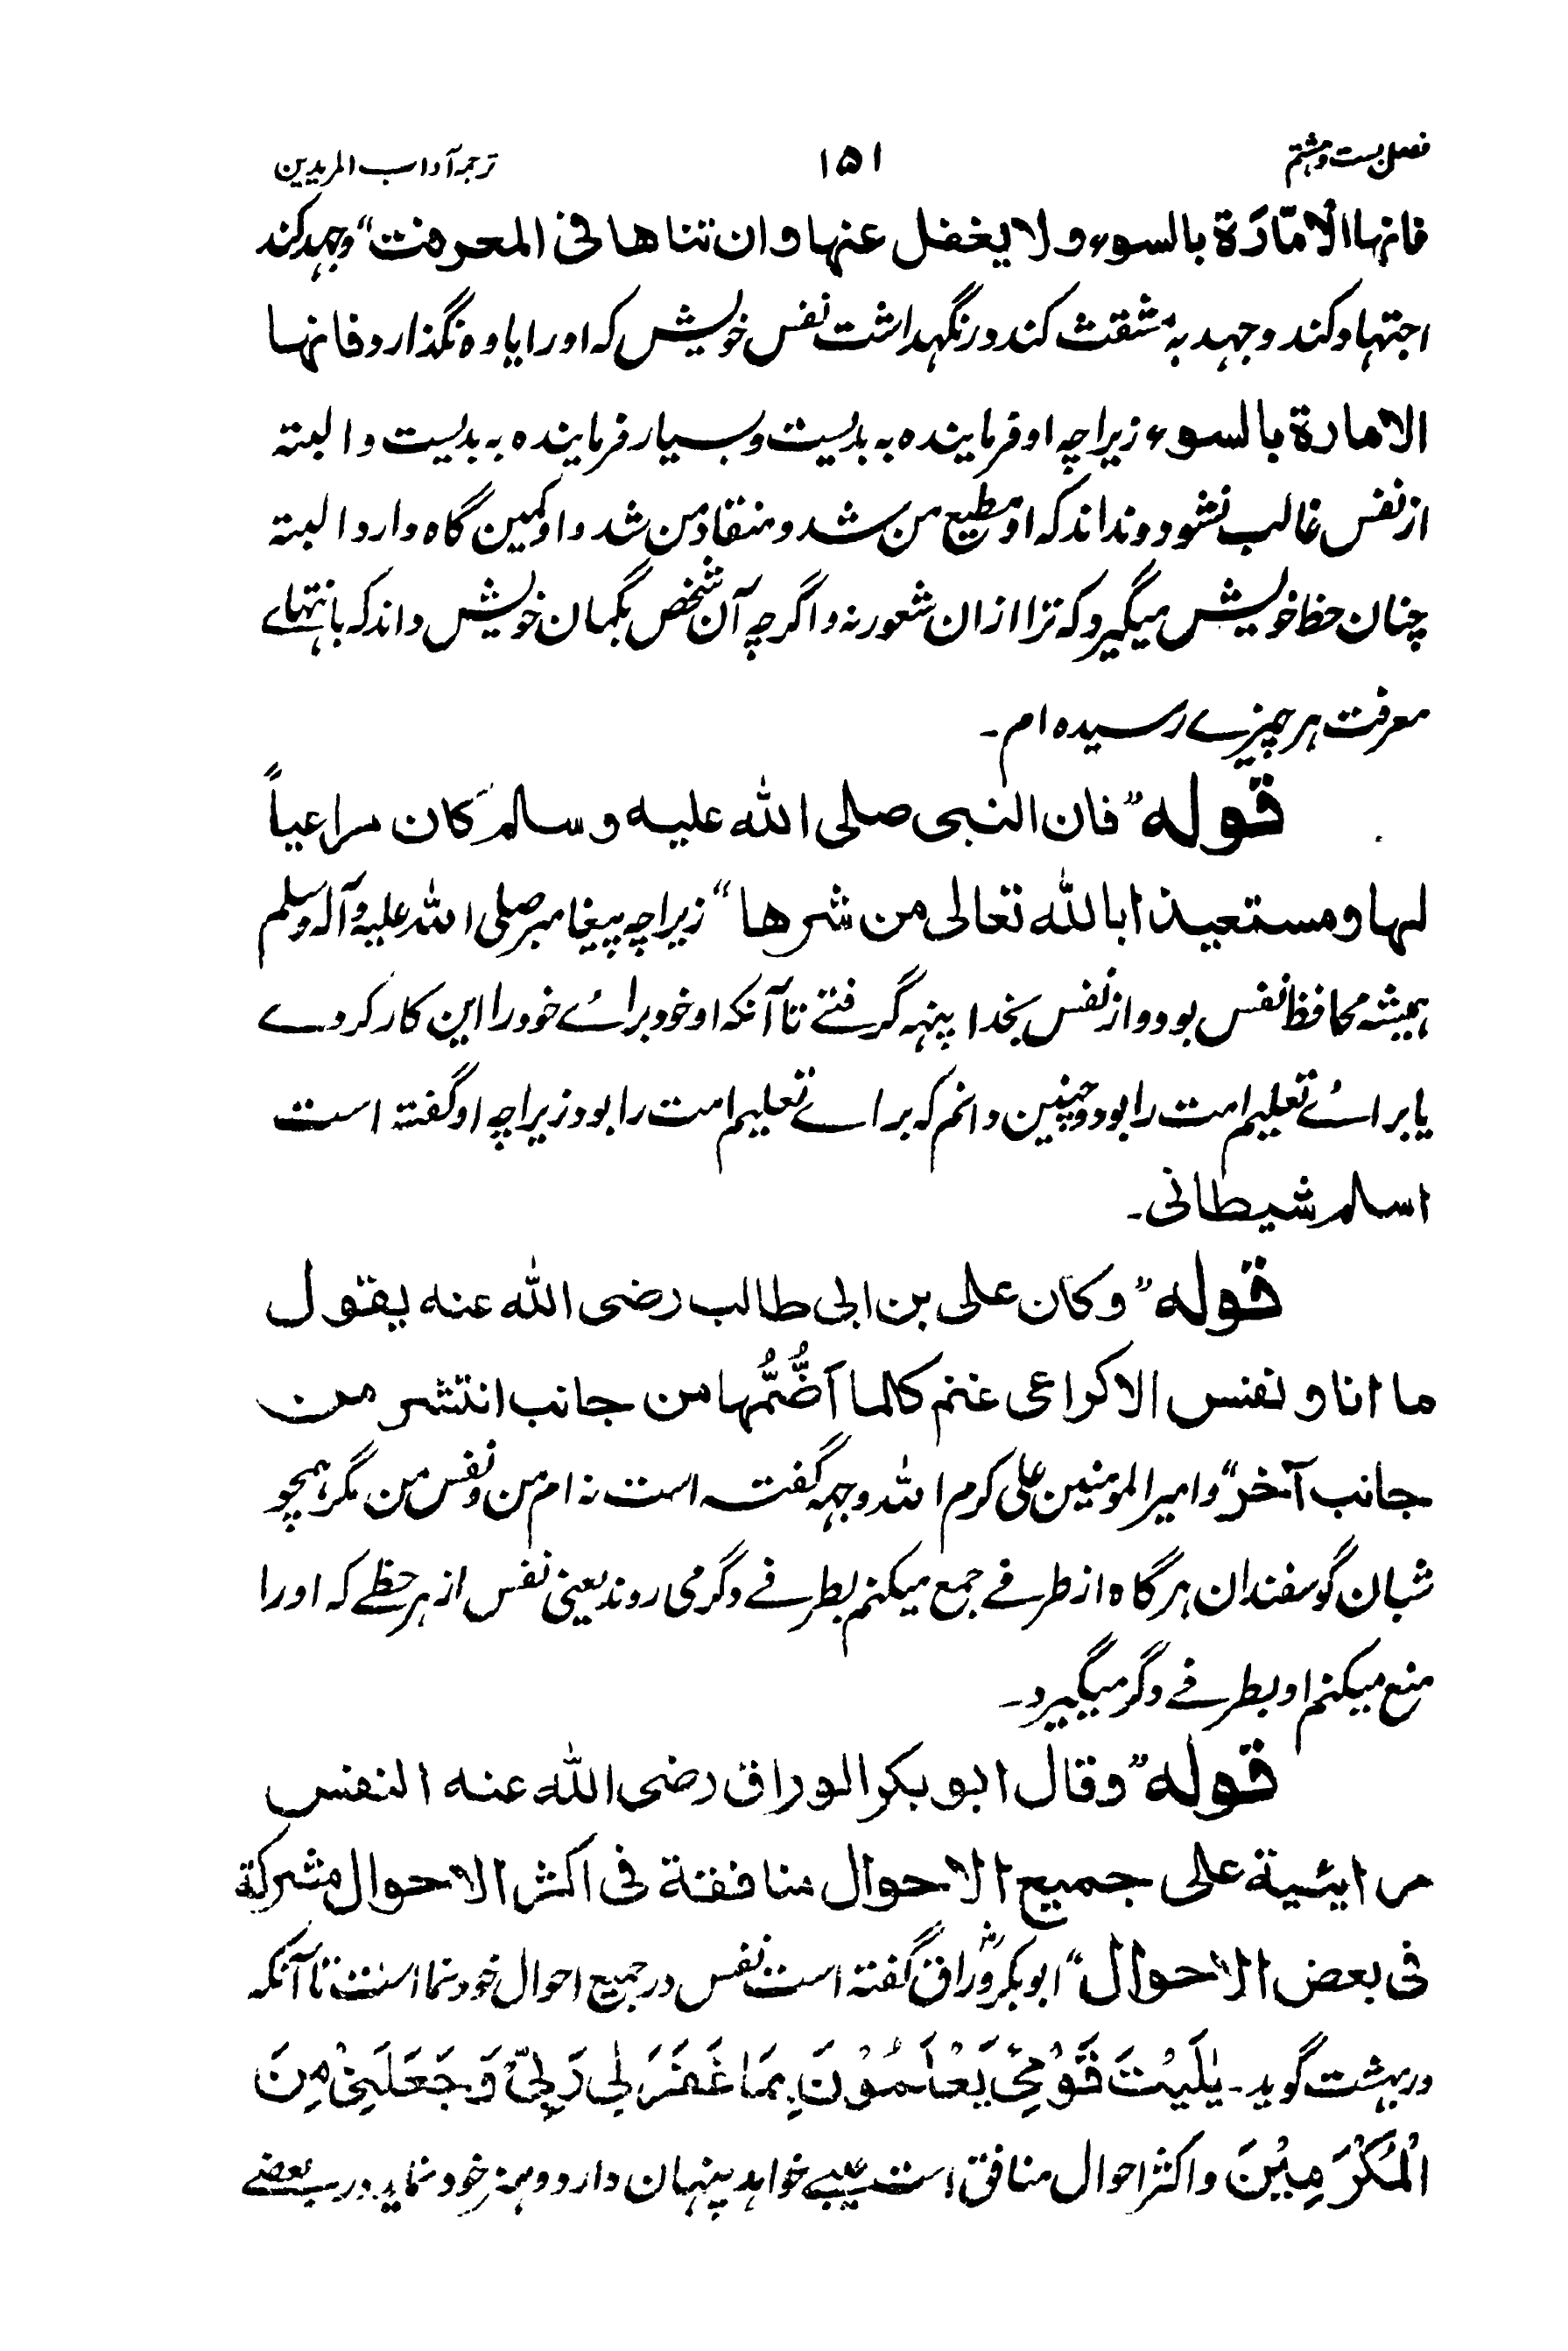 فصل بست وہشتم ۱۵۱ ترجمہ آداب المریدین
فانہا الامّارَۃ بالسوء ولا یغفل عنہا وان تناھا فی المعرفت" وجہد کند
اجتہاد کند وجہد بہ مشقت کند در نگہداشت نفس خویش کہ او را یاوہ نگذارد فانہا
الامارۃ بالسوء زیراچہ او فرمایندہ بہ بدیست وبسیار فرمایندہ بہ بدیست و البتہ
از نفس غالب نشود و نداند کہ او مطیع من شد و منقاد من شد و او کمین گاہ دارد البتہ
چنان حظ خویش میگیرد کہ ترا ازان شعور نہ و اگرچہ آن شخص بگمان خویش داند کہ بانتہاے
معرفت ہر چیزے رسیدہ ام۔
قولہ "فان النبی صلی اللہ علیہ وسلم کان راعیاً
لہا ومستعیذا باللہ تعالی من شرھا" زیراچہ پیغامبر صلی اللہ علیہ وآلہ وسلم
ہمیشہ محافظ نفس بود و از نفس بخدا پنہہ گرفتے تا آنکہ او خود براۓ خود را این کار کردے
یا براۓ تعلیم امت را بود و چنین دانم کہ براے تعلیم امت را بود زیراچہ او گفتہ است
اسلم شیطانی۔
قولہ "وکان علی بن ابی طالب رضی اللہ عنہ یقول
ما انا و نفسی الا کراعی غنم کلما اَضُّمُّہا من جانب انتشر من
جانب آخر" و امیر المومنین علی کرم اللہ وجہہ گفتہ است نہ ام من و نفس من مگر ہمچو
شبان گوسفندان ہرگاہ از طرفے جمع میکنم بطرفے دگر می روند یعنی نفس از ہر حظے کہ او را
منع میکنم او بطرفے دگر میگیرد۔
قولہ "وقال ابو بکر الوراق رضی اللہ عنہ النفس
مرائیة علی جمیع الاحوال منافقة فی اکثر الاحوال مشرکة
فی بعض الاحوال" ابوبکر ورّاقؒ گفتہ است نفس در جمیع احوال خود نما است تا آنکہ
در بہشت گوید۔ یٰلَیْتَ قَوْمِیْ یَعْلَمُوْنَ بِمَا غَفَرَ لِی رَبِّیْ وَجَعَلَنِیْ مِنَ
الْمُکْرَمِیْنَ و اکثر احوال منافق است عیبے خواہد پنہان دارد و ہنر خود نماید در بعضے